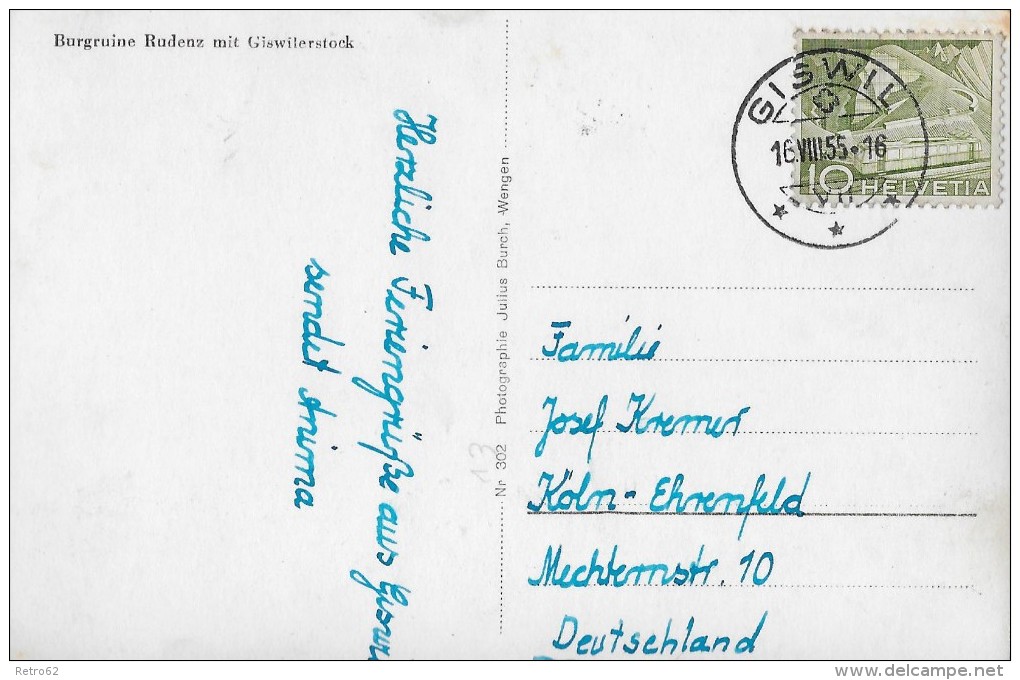 Burgruine Rudenz mit Giswilerstock
GISWIL
16.VIII.55-16
10 HELVETIA
Herzliche Feriengrüße aus
sendet
Nr 302 Photographie Julius Burch, Wengen
13
Familie
Josef Kremer
Köln-Ehrenfeld
Mechternstr. 10
Deutschland
Retro62
delcampe.net